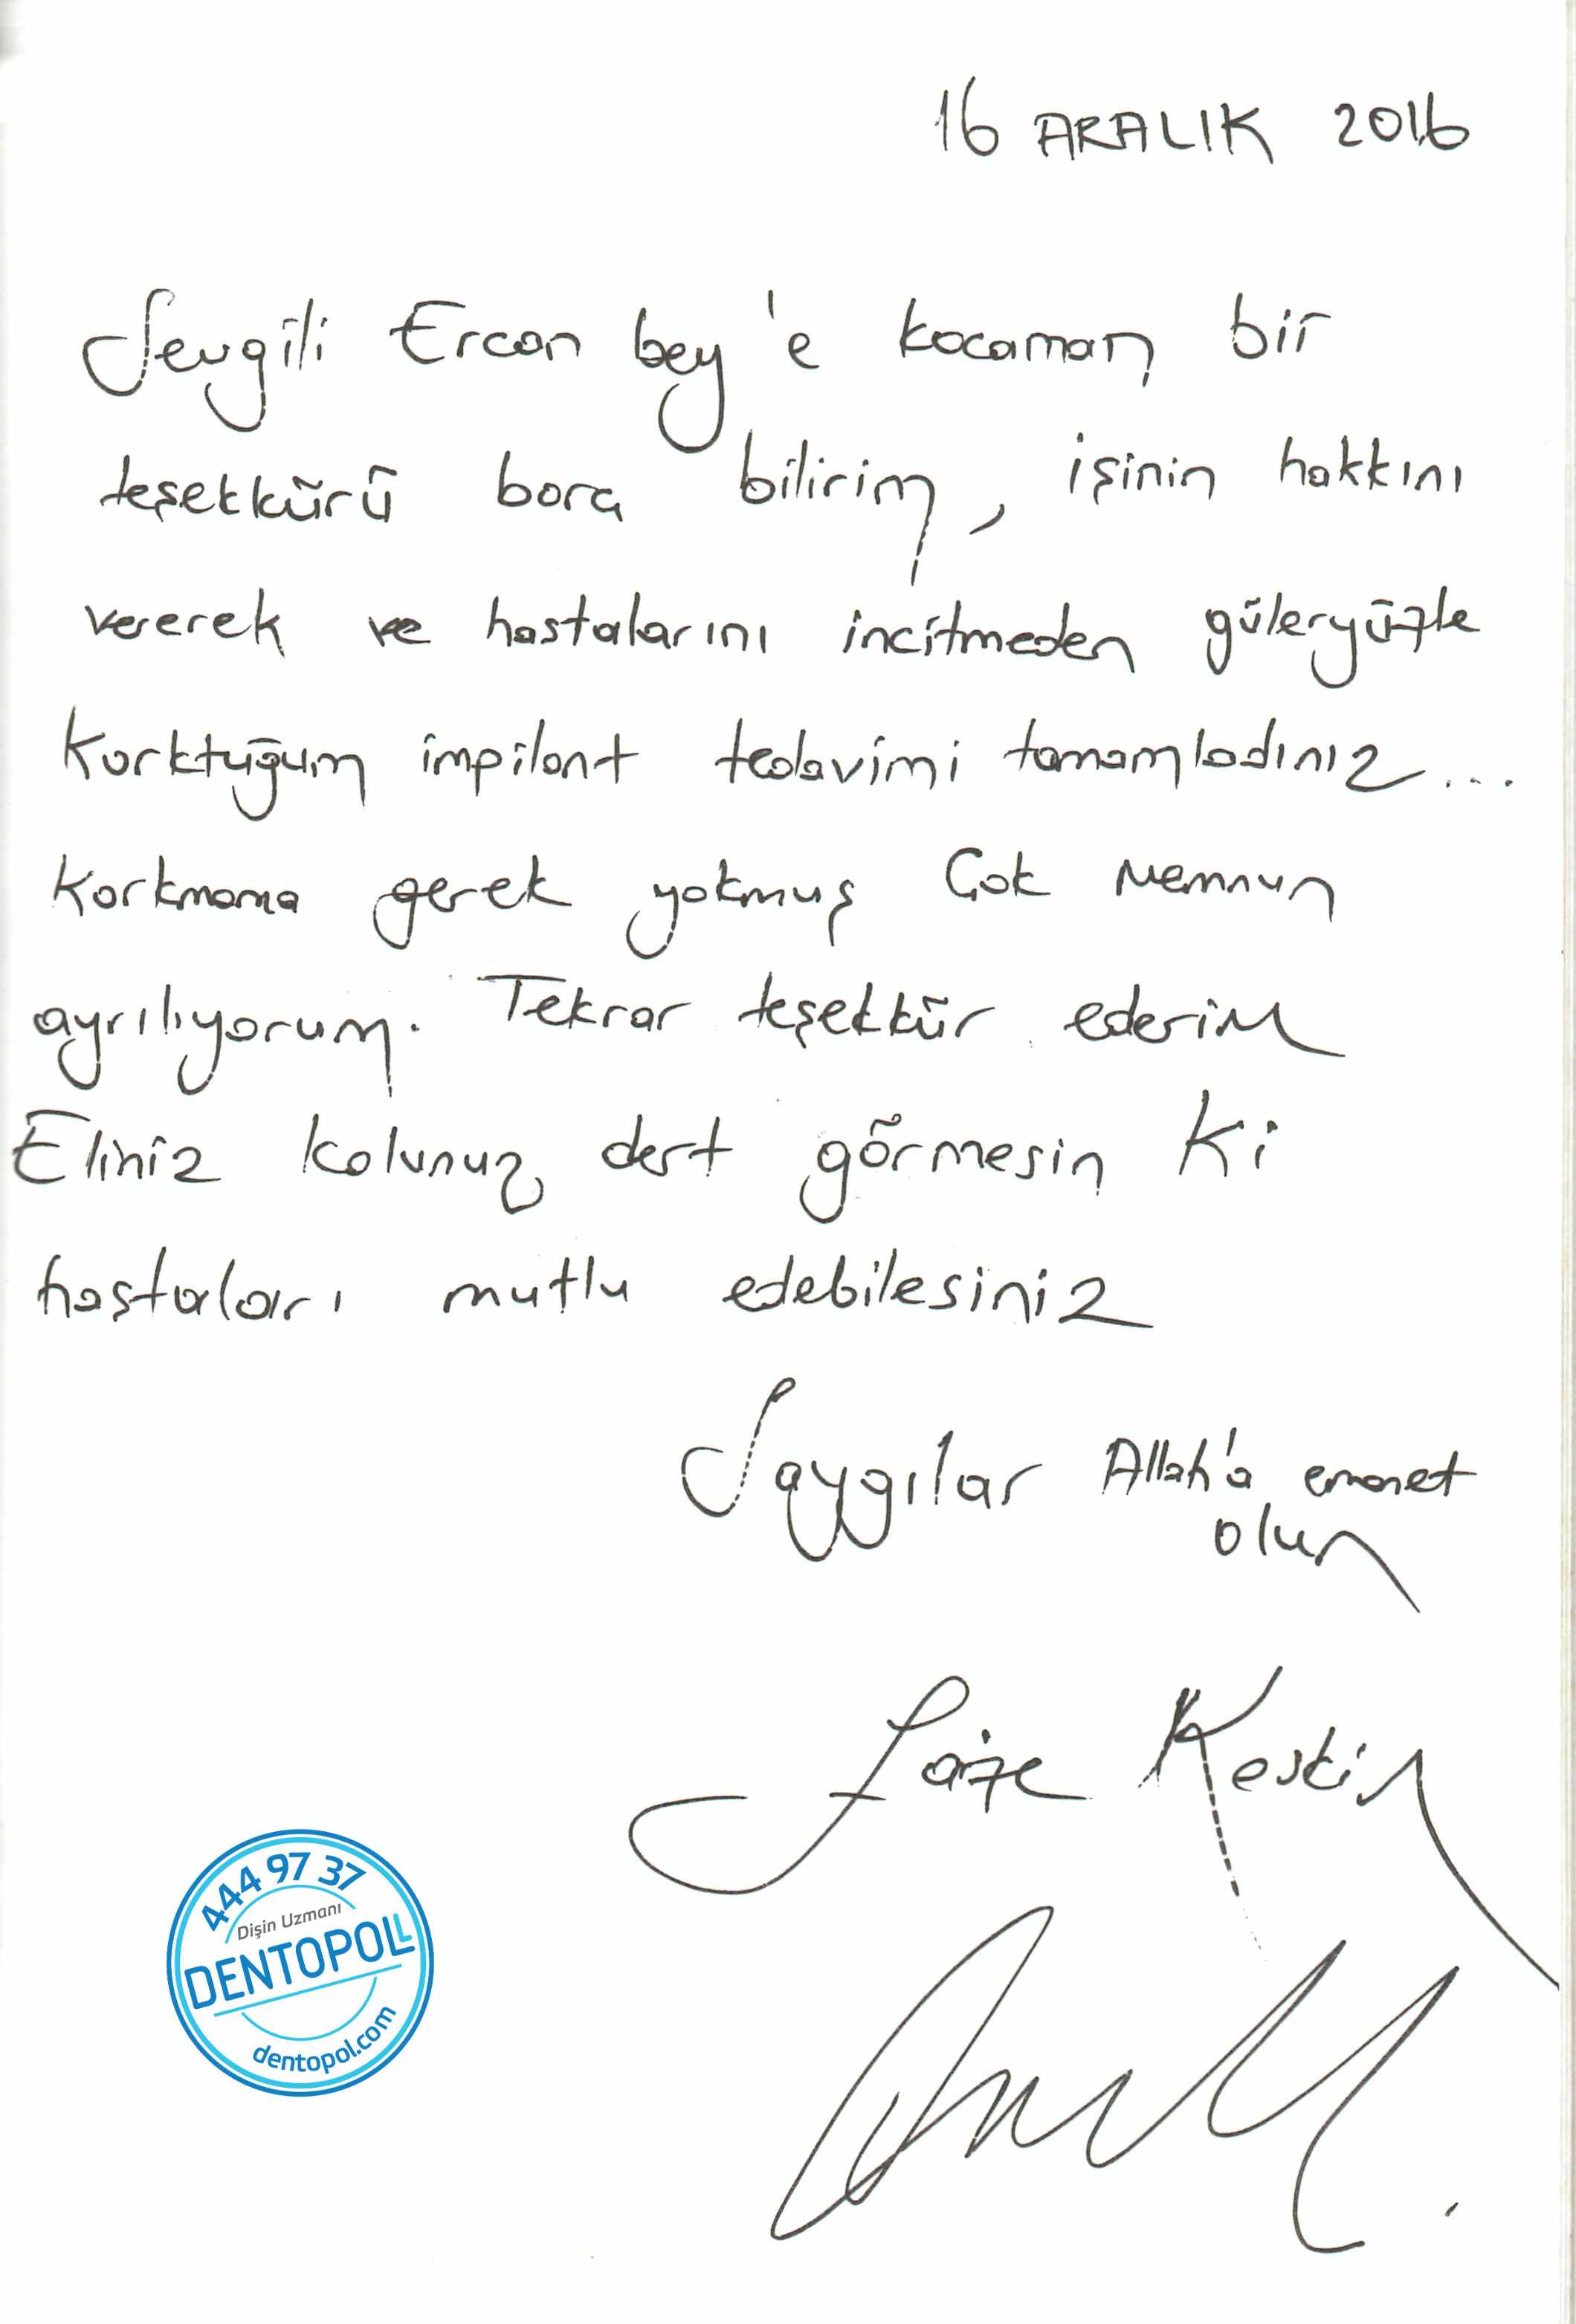 16 ARALIK 2016
Sevgili Ercan bey'e kocaman bir
teşekkürü borç bilirim, işinin hakkını
vererek ve hastalarını incitmeden güleryüzle
Korktuğum impilant tedavimi tamamladınız...
Korkmama gerek yokmuş Çok Memnun
ayrılıyorum. Tekrar teşekkür ederim
Eliniz kolunuz dert görmesin Ki
hastaları mutlu edebilesiniz
Saygılar Allah'a emanet
olun
Faize Keskin
444 97 37
Dişin Uzmanı
DENTOPOL
dentopol.com